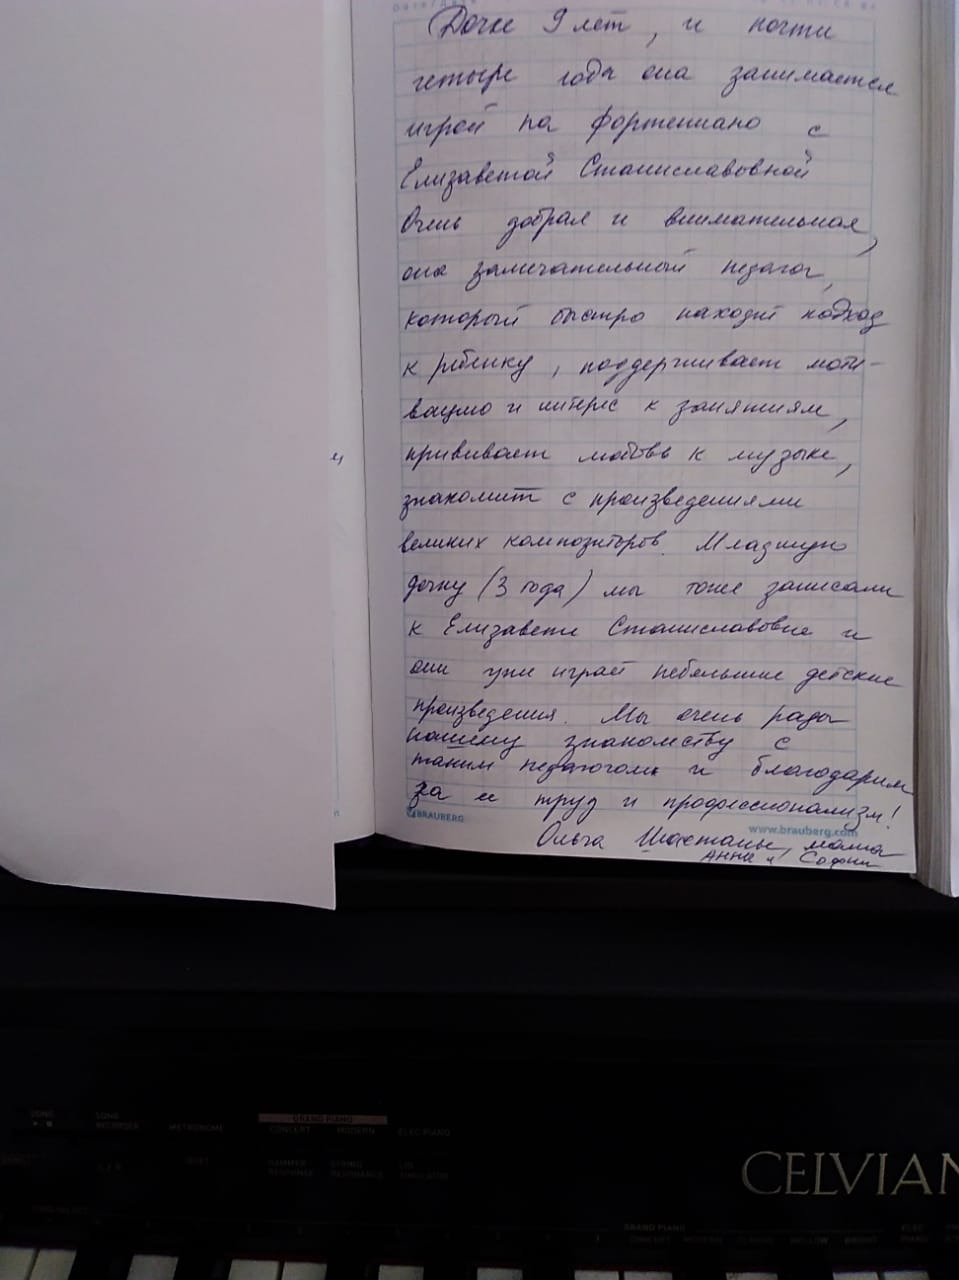 Дочке 9 лет, и почти
четыре года она занимается
игрой на фортепиано с
Елизаветой Станиславовной
Очень добрая и внимательная,
она замечательный педагог,
который быстро находит подход
к ребенку, поддерживает моти-
вацию и интерес к занятиям,
прививает любовь к музыке,
знакомит с произведениями
великих композиторов. Младшую
дочку (3 года) мы тоже записали
к Елизавете Станиславовне и
они уже играет небольшие детские
произведения. Мы очень рады
нашему знакомству с
таким педагогом и благодарим
за ее труд и профессионализм!
BRAUBERG
www.brauberg.com
Ольга мама
Анны и Софии
SONG
SONG RECORDER
METRONOME
GRAND PIANO
CONCERT MODERN ELEC PIANO
HAMMER RESPONSE
STRING RESONANCE
CELVIAN
GRAND PIANO
CONCERT MODERN CLASSIC MELLOW BRIGHT